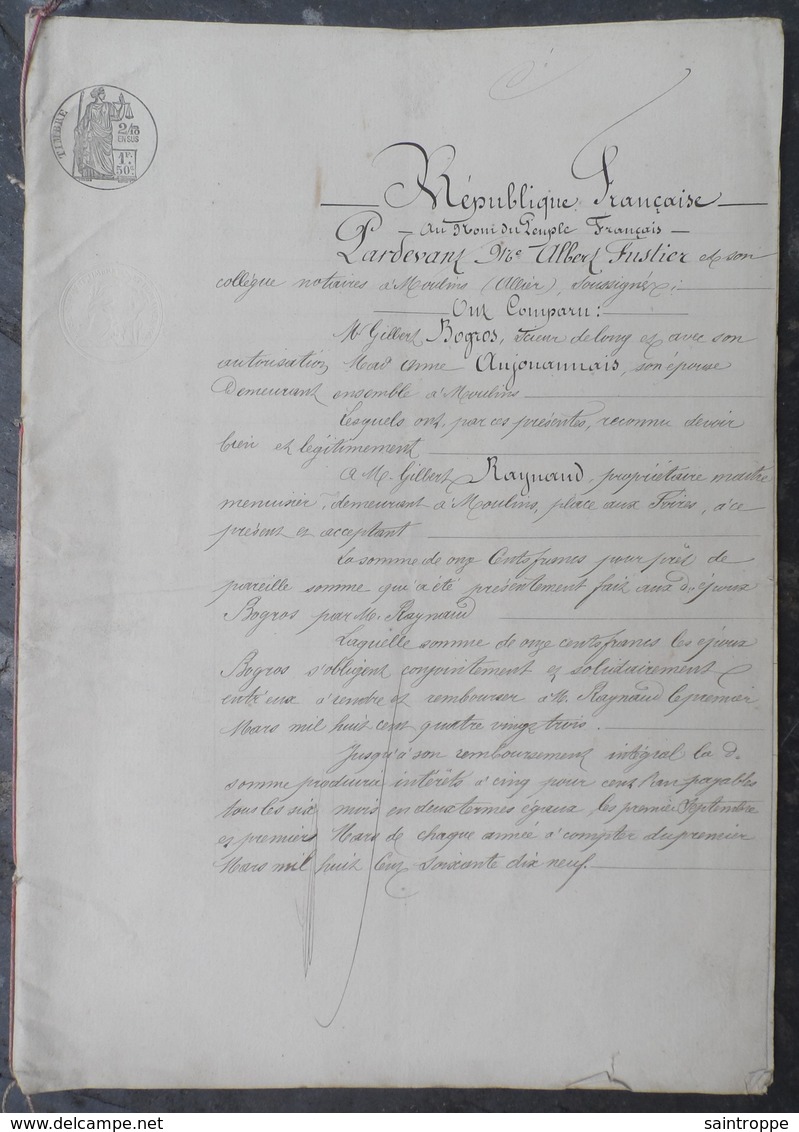 TIMBRE
2/10
EN SUS
1F.
50C.
République Française
Au Nom du Peuple Français
Pardevant Me Albert Fustier et son
collègue notaires à Moulins (Allier), soussignés;
Ont Comparu:
Mr Gilbert Bogros, scieur de long et avec son
autorisation Made Anne Aujouannais, son épouse
Demeurant ensemble à Moulins
Lesquels ont, par ces présentes, reconnu devoir
bien et légitimement
A M. Gilbert Raynaud, propriétaire maître
menuisier, demeurant à Moulins, place aux Foires, à ce
présent et acceptant
La somme de onze Cents francs pour prêt de
pareille somme qui a été présentement fait aux d. époux
Bogros par M. Raynaud
Laquelle somme de onze cents francs les époux
Bogros s'obligent conjointement et solidairement
entr'eux à rendre et rembourser à M. Raynaud le premier
Mars mil huit cent quatre vingt trois.
Jusqu'à son remboursement intégral la d.
somme produira intérêts à cinq pour cent l'an payables
tous les six mois en deux termes égaux, les premier Septembre
et premier Mars de chaque année à compter du premier
Mars mil huit Cent soixante dix neuf.
delcampe.net
saintroppe